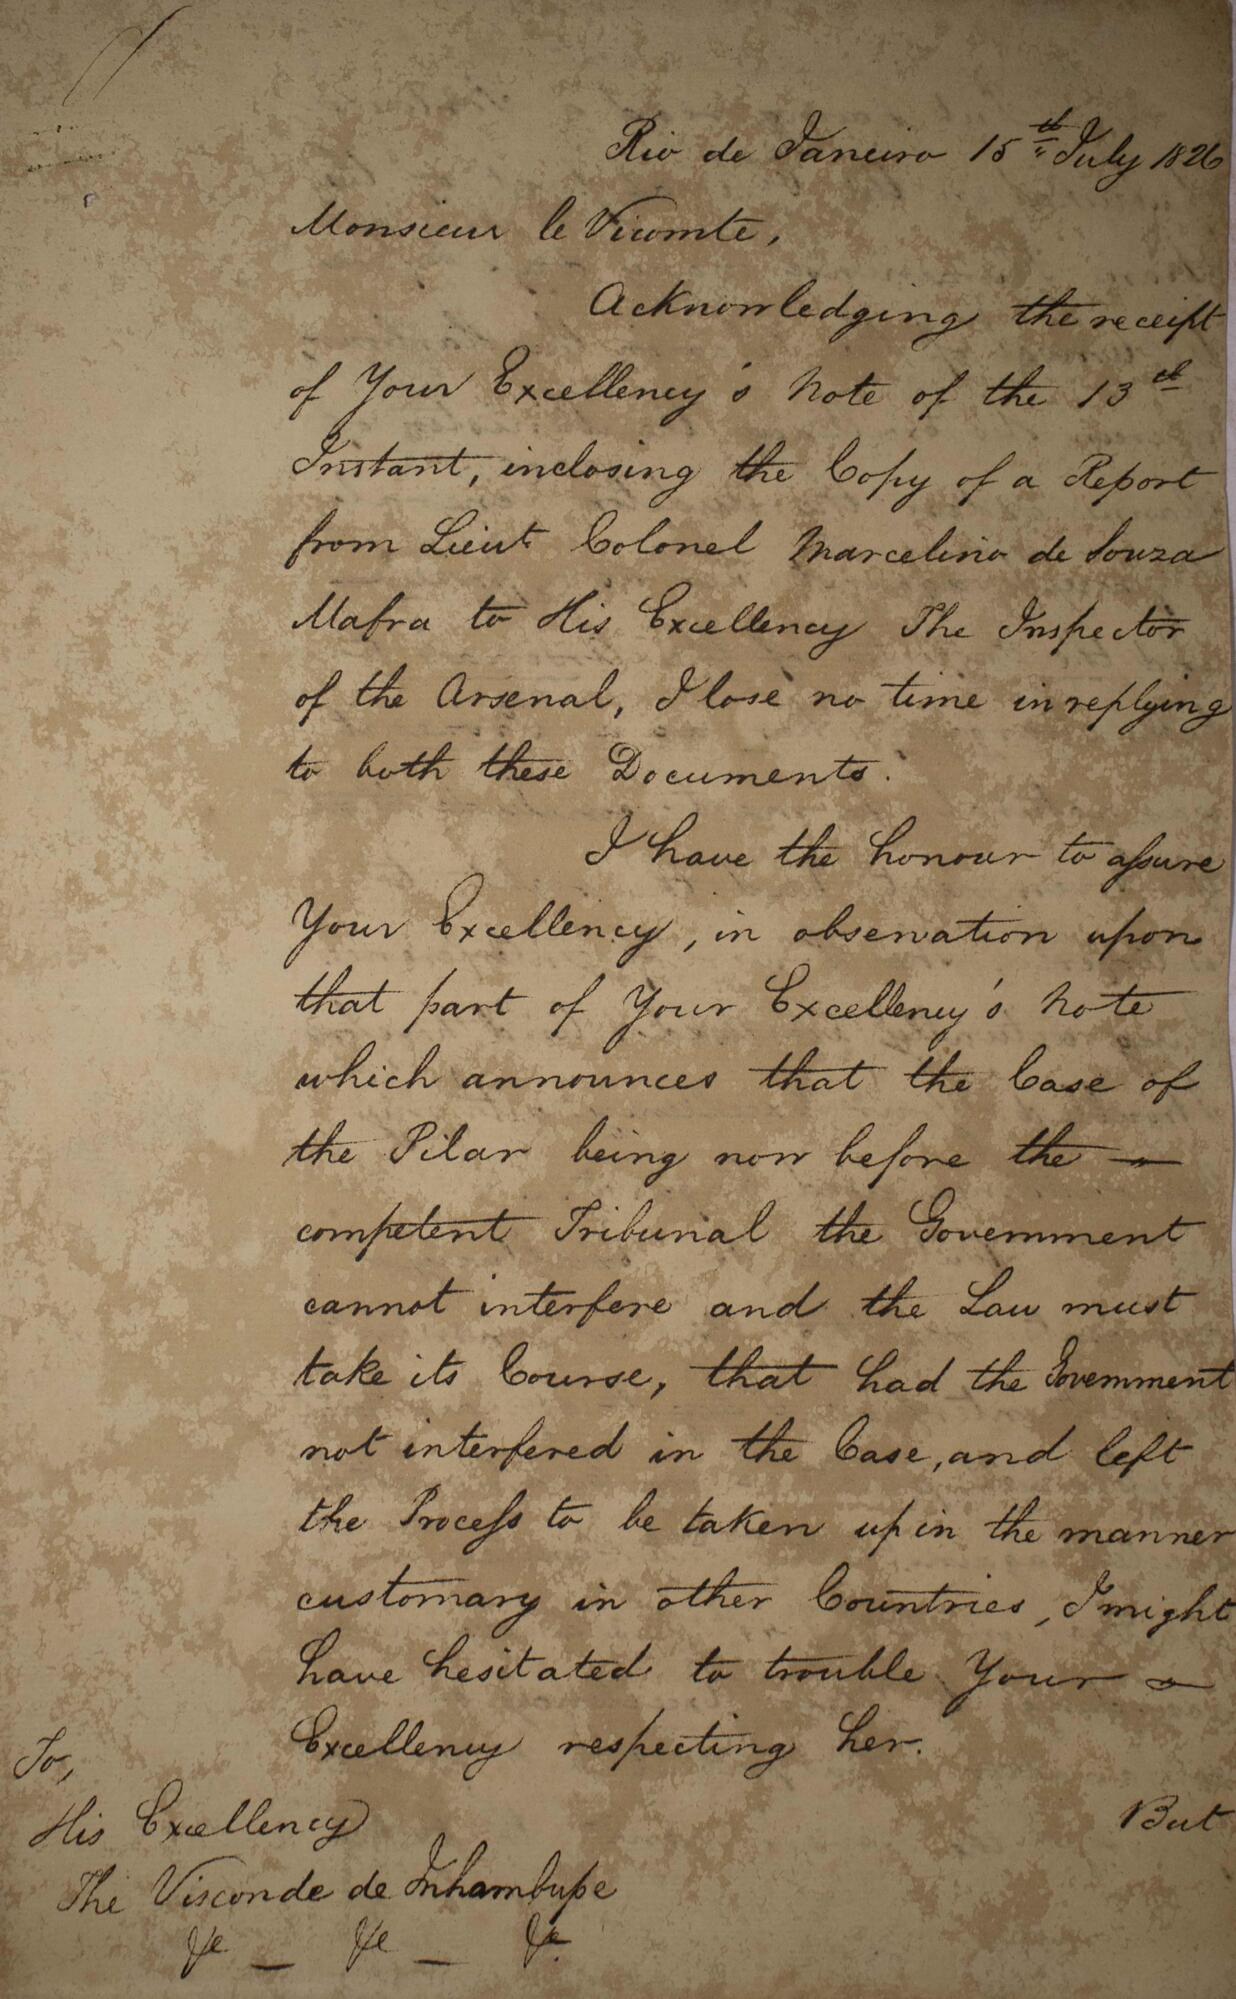 Rio de Janeiro 15th July 1826
Monsieur le Vicomte,
Acknowledging the receipt
of Your Excellency's Note of the 13th
Instant, inclosing the Copy of a Report
from Lieut. Colonel Marcelino de Souza
Mafra to His Excellency The Inspector
of the Arsenal, I lose no time in replying
to both these Documents.
I have the honour to aſsure
Your Excellency, in observation upon
that part of Your Excellency's Note
which announces that the Case of
the Pilar being now before the —
competent Tribunal the Government
cannot interfere and the Law must
take its Course, that had the Government
not interfered in the Case, and left
the Proceſs to be taken up in the manner
customary in other Countries, I might
have hesitated to trouble Your —
Excellency respecting her.
But
To,
His Excellency
The Visconde de Inhambupe
&c — &c — &c